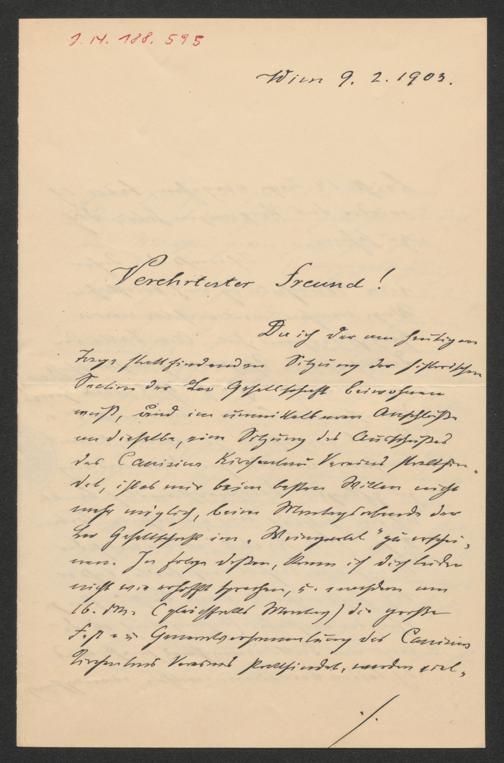 J. N. 188.595
Wien 9. 2. 1903.
Verehrtester Freund!
Da ich der am heutigen
Tage stattfindenden Sitzung der historischen
Section der Leo Gesellschaft beiwohnen
muß, und im unmittelbaren Anschluße
an dieselbe, eine Sitzung des Ausschußes
des Canisius Kirchenbau Vereins stattfin-
det, ist es mir beim besten Willen nicht
mehr möglich, beim Montagsabende der
Leo Gesellschaft im „Weingartl“ zu erschei-
nen. In folge deßen, kann ich dich leider
nicht wie erhofft sprechen, u. nachdem am
16. dM. (gleichfalls Montag) die große
Fest u Generalversammlung des Canisius
Kirchenbau Vereins stattfindet, werden viel-
./.